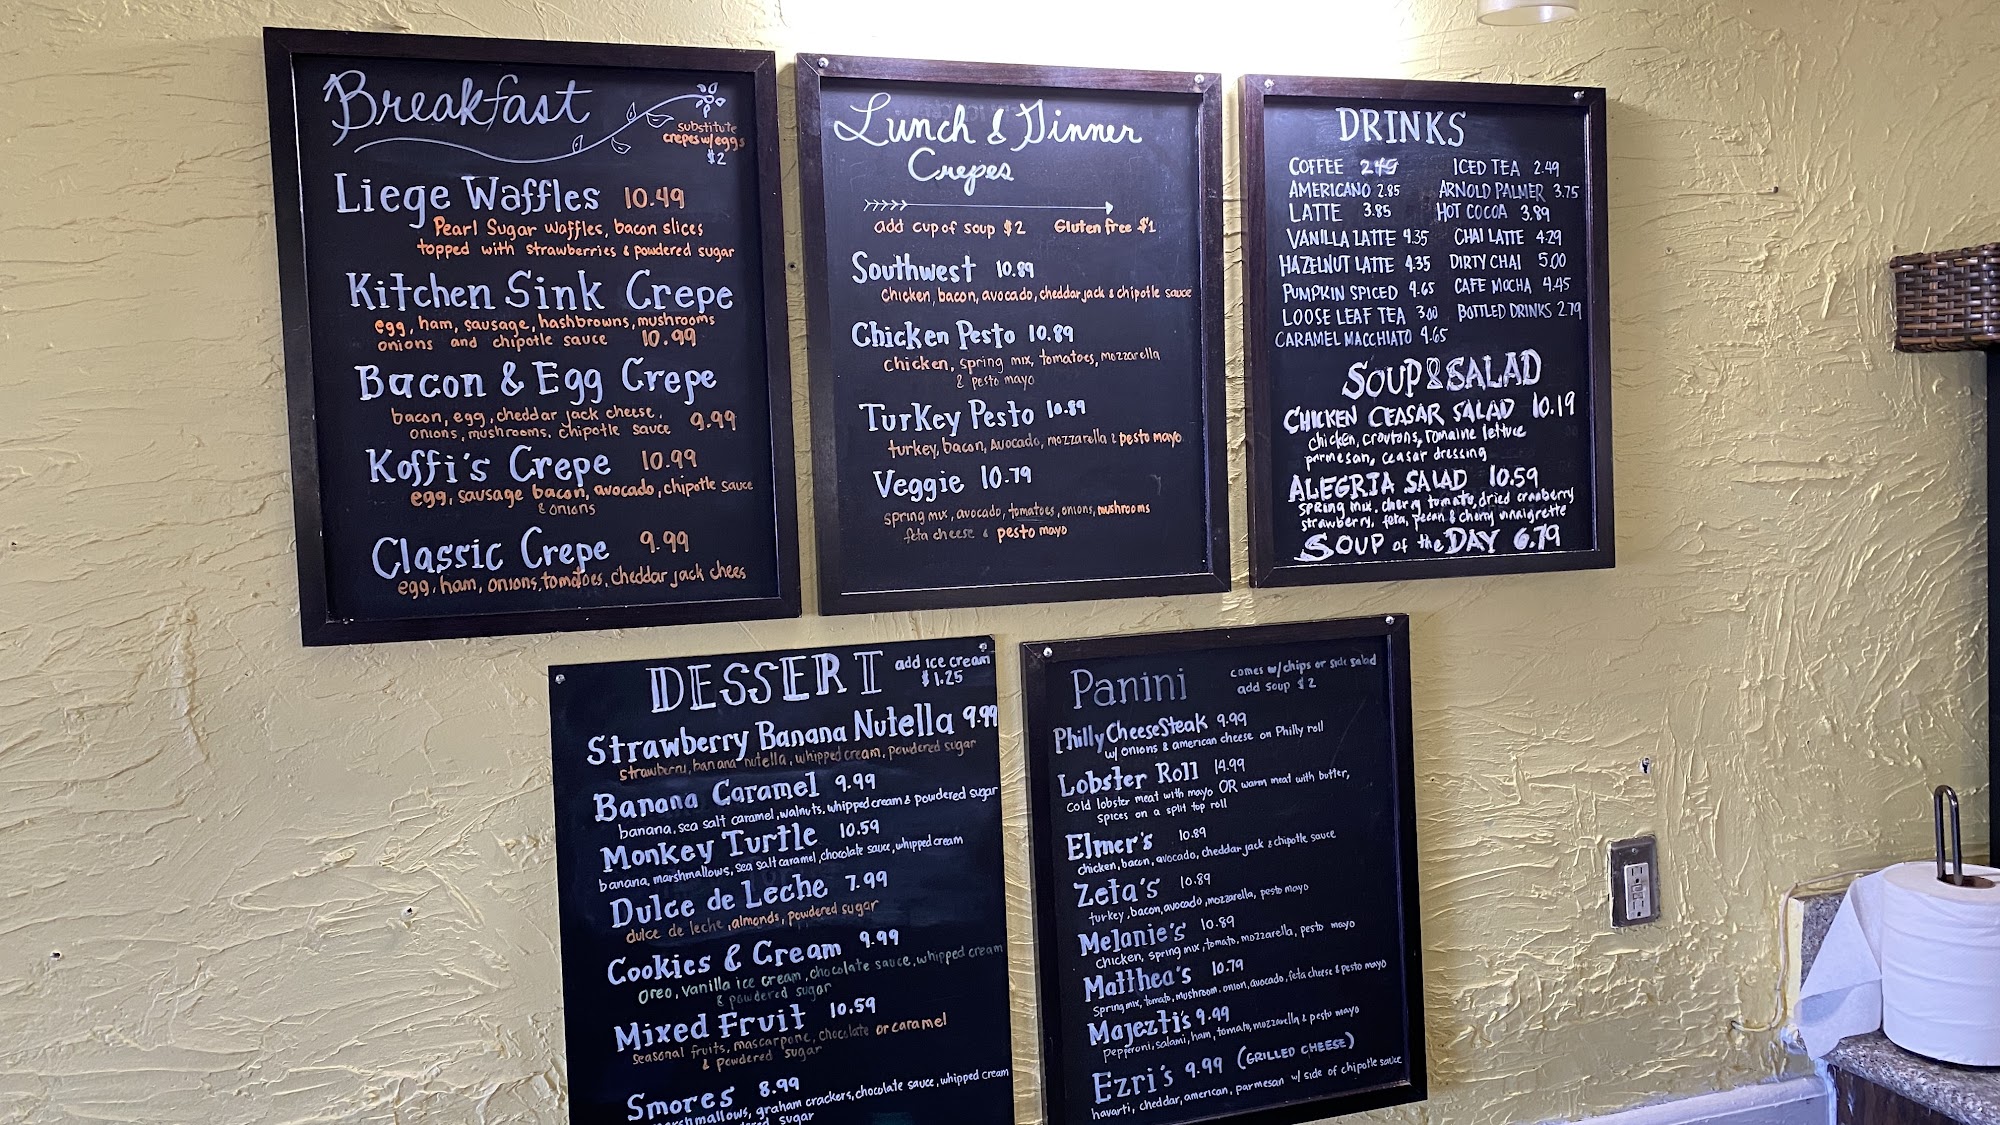 Breakfast
substitute
crepes w/eggs
$2
Liege Waffles 10.49
Pearl Sugar waffles, bacon slices
topped with strawberries & powdered sugar
Kitchen Sink Crepe
egg, ham, sausage, hashbrowns, mushrooms
onions and chipotle sauce 10.99
Bacon & Egg Crepe
bacon, egg, cheddar jack cheese,
onions, mushrooms, chipotle sauce 9.99
Koffi's Crepe 10.99
egg, sausage bacon, avocado, chipotle sauce
& onions
Classic Crepe 9.99
egg, ham, onions, tomatoes, cheddar jack chees
Lunch & Dinner
Crepes
add cup of soup $2 Gluten free $1
Southwest 10.89
Chicken, bacon, avocado, cheddar jack & chipotle sauce
Chicken Pesto 10.89
chicken, spring mix, tomatoes, mozzarella
& pesto mayo
Turkey Pesto 10.89
turkey, bacon, Avocado, mozzarella & pesto mayo
Veggie 10.79
spring mix, avocado, tomatoes, onions, mushrooms
feta cheese & pesto mayo
DRINKS
COFFEE 2.49 ICED TEA 2.49
AMERICANO 2.85 ARNOLD PALMER 3.75
LATTE 3.85 HOT COCOA 3.89
VANILLA LATTE 4.35 CHAI LATTE 4.29
HAZELNUT LATTE 4.35 DIRTY CHAI 5.00
PUMPKIN SPICED 4.65 CAFE MOCHA 4.45
LOOSE LEAF TEA 3.00 BOTTLED DRINKS 2.79
CARAMEL MACCHIATO 4.65
SOUP & SALAD
CHICKEN CEASAR SALAD 10.19
chicken, croutons, romaine lettuce
parmesan, ceasar dressing
ALEGRIA SALAD 10.59
SPRING MIX, cherry tomato, dried cranberry
strawberry, feta, pecan & cherry vinaigrette
SOUP of the DAY 6.79
DESSERT add ice cream
$1.25
Strawberry Banana Nutella 9.99
strawberry, banana nutella, whipped cream, powdered sugar
Banana Caramel 9.99
banana, sea salt caramel, walnuts, whipped cream & powdered sugar
Monkey Turtle 10.59
banana, marshmallows, sea salt caramel, chocolate sauce, whipped cream
Dulce de Leche 7.99
dulce de leche, almonds, powdered sugar
Cookies & Cream 9.99
oreo, vanilla ice cream, chocolate sauce, whipped cream
& powdered sugar
Mixed Fruit 10.59
seasonal fruits, mascarpone, chocolate or caramel
& powdered sugar
Smores 8.99
marshmallows, graham crackers, chocolate sauce, whipped cream
sugar
Panini comes w/chips or side salad
add soup $2
Philly Cheese Steak 9.99
w/ onions & american cheese on Philly roll
Lobster Roll 14.99
cold lobster meat with mayo OR warm meat with butter,
spices on a split top roll
Elmer's 10.89
chicken, bacon, avocado, cheddar jack & chipotle sauce
Zeta's 10.89
turkey, bacon, avocado, mozzarella, pesto mayo
Melanie's 10.89
Chicken, spring mix, tomato, mozzarella, pesto mayo
Matthea's 10.79
Spring mix, tomato, mushroom, onion, avocado, feta cheese & pesto mayo
Majezti's 9.99
pepperoni, salami, ham, tomato, mozzarella & pesto mayo
Ezri's 9.99 (GRILLED CHEESE)
havarti, cheddar, american, parmesan w/ side of chipotle sauce